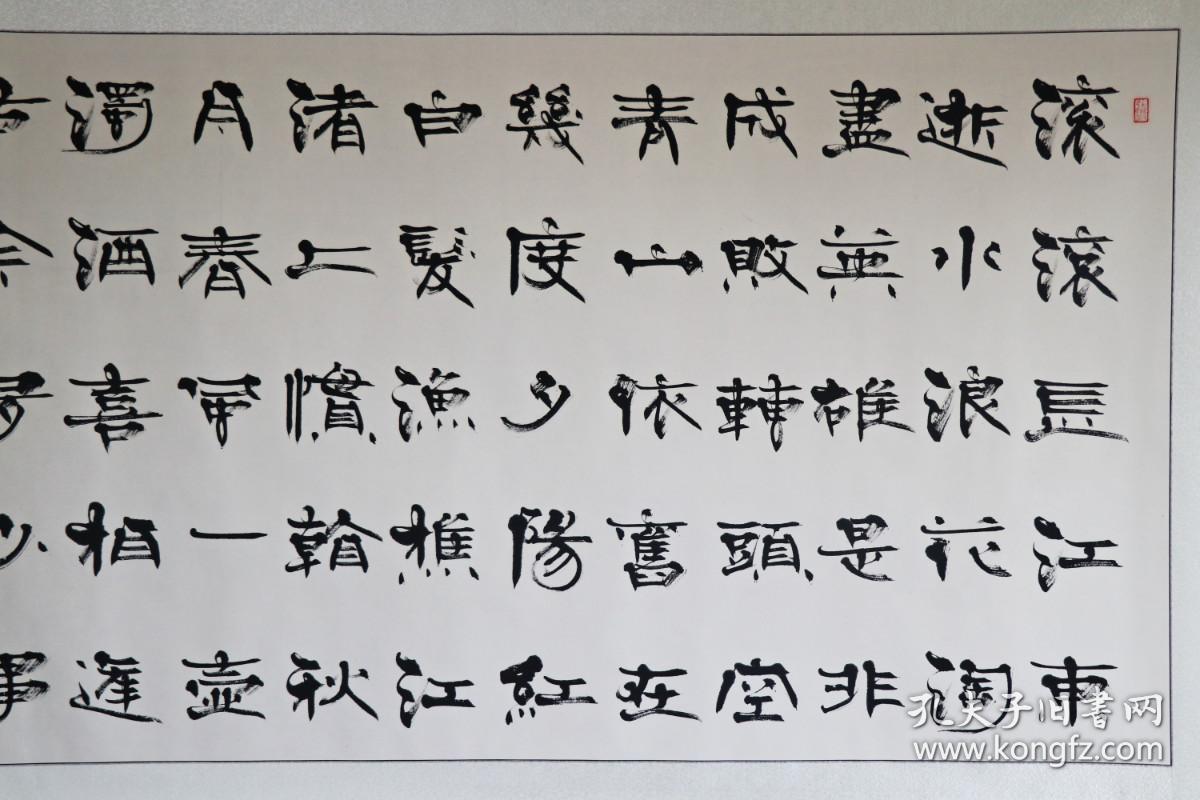 滚滚長江東
逝水浪花淘
盡英雄是非
成敗轉頭空
青山依舊在
幾度夕陽紅
白髮漁樵江
渚上慣看秋
月春風一壺
濁酒喜相逢
古今多少事
孔夫子旧書网
www.kongfz.com